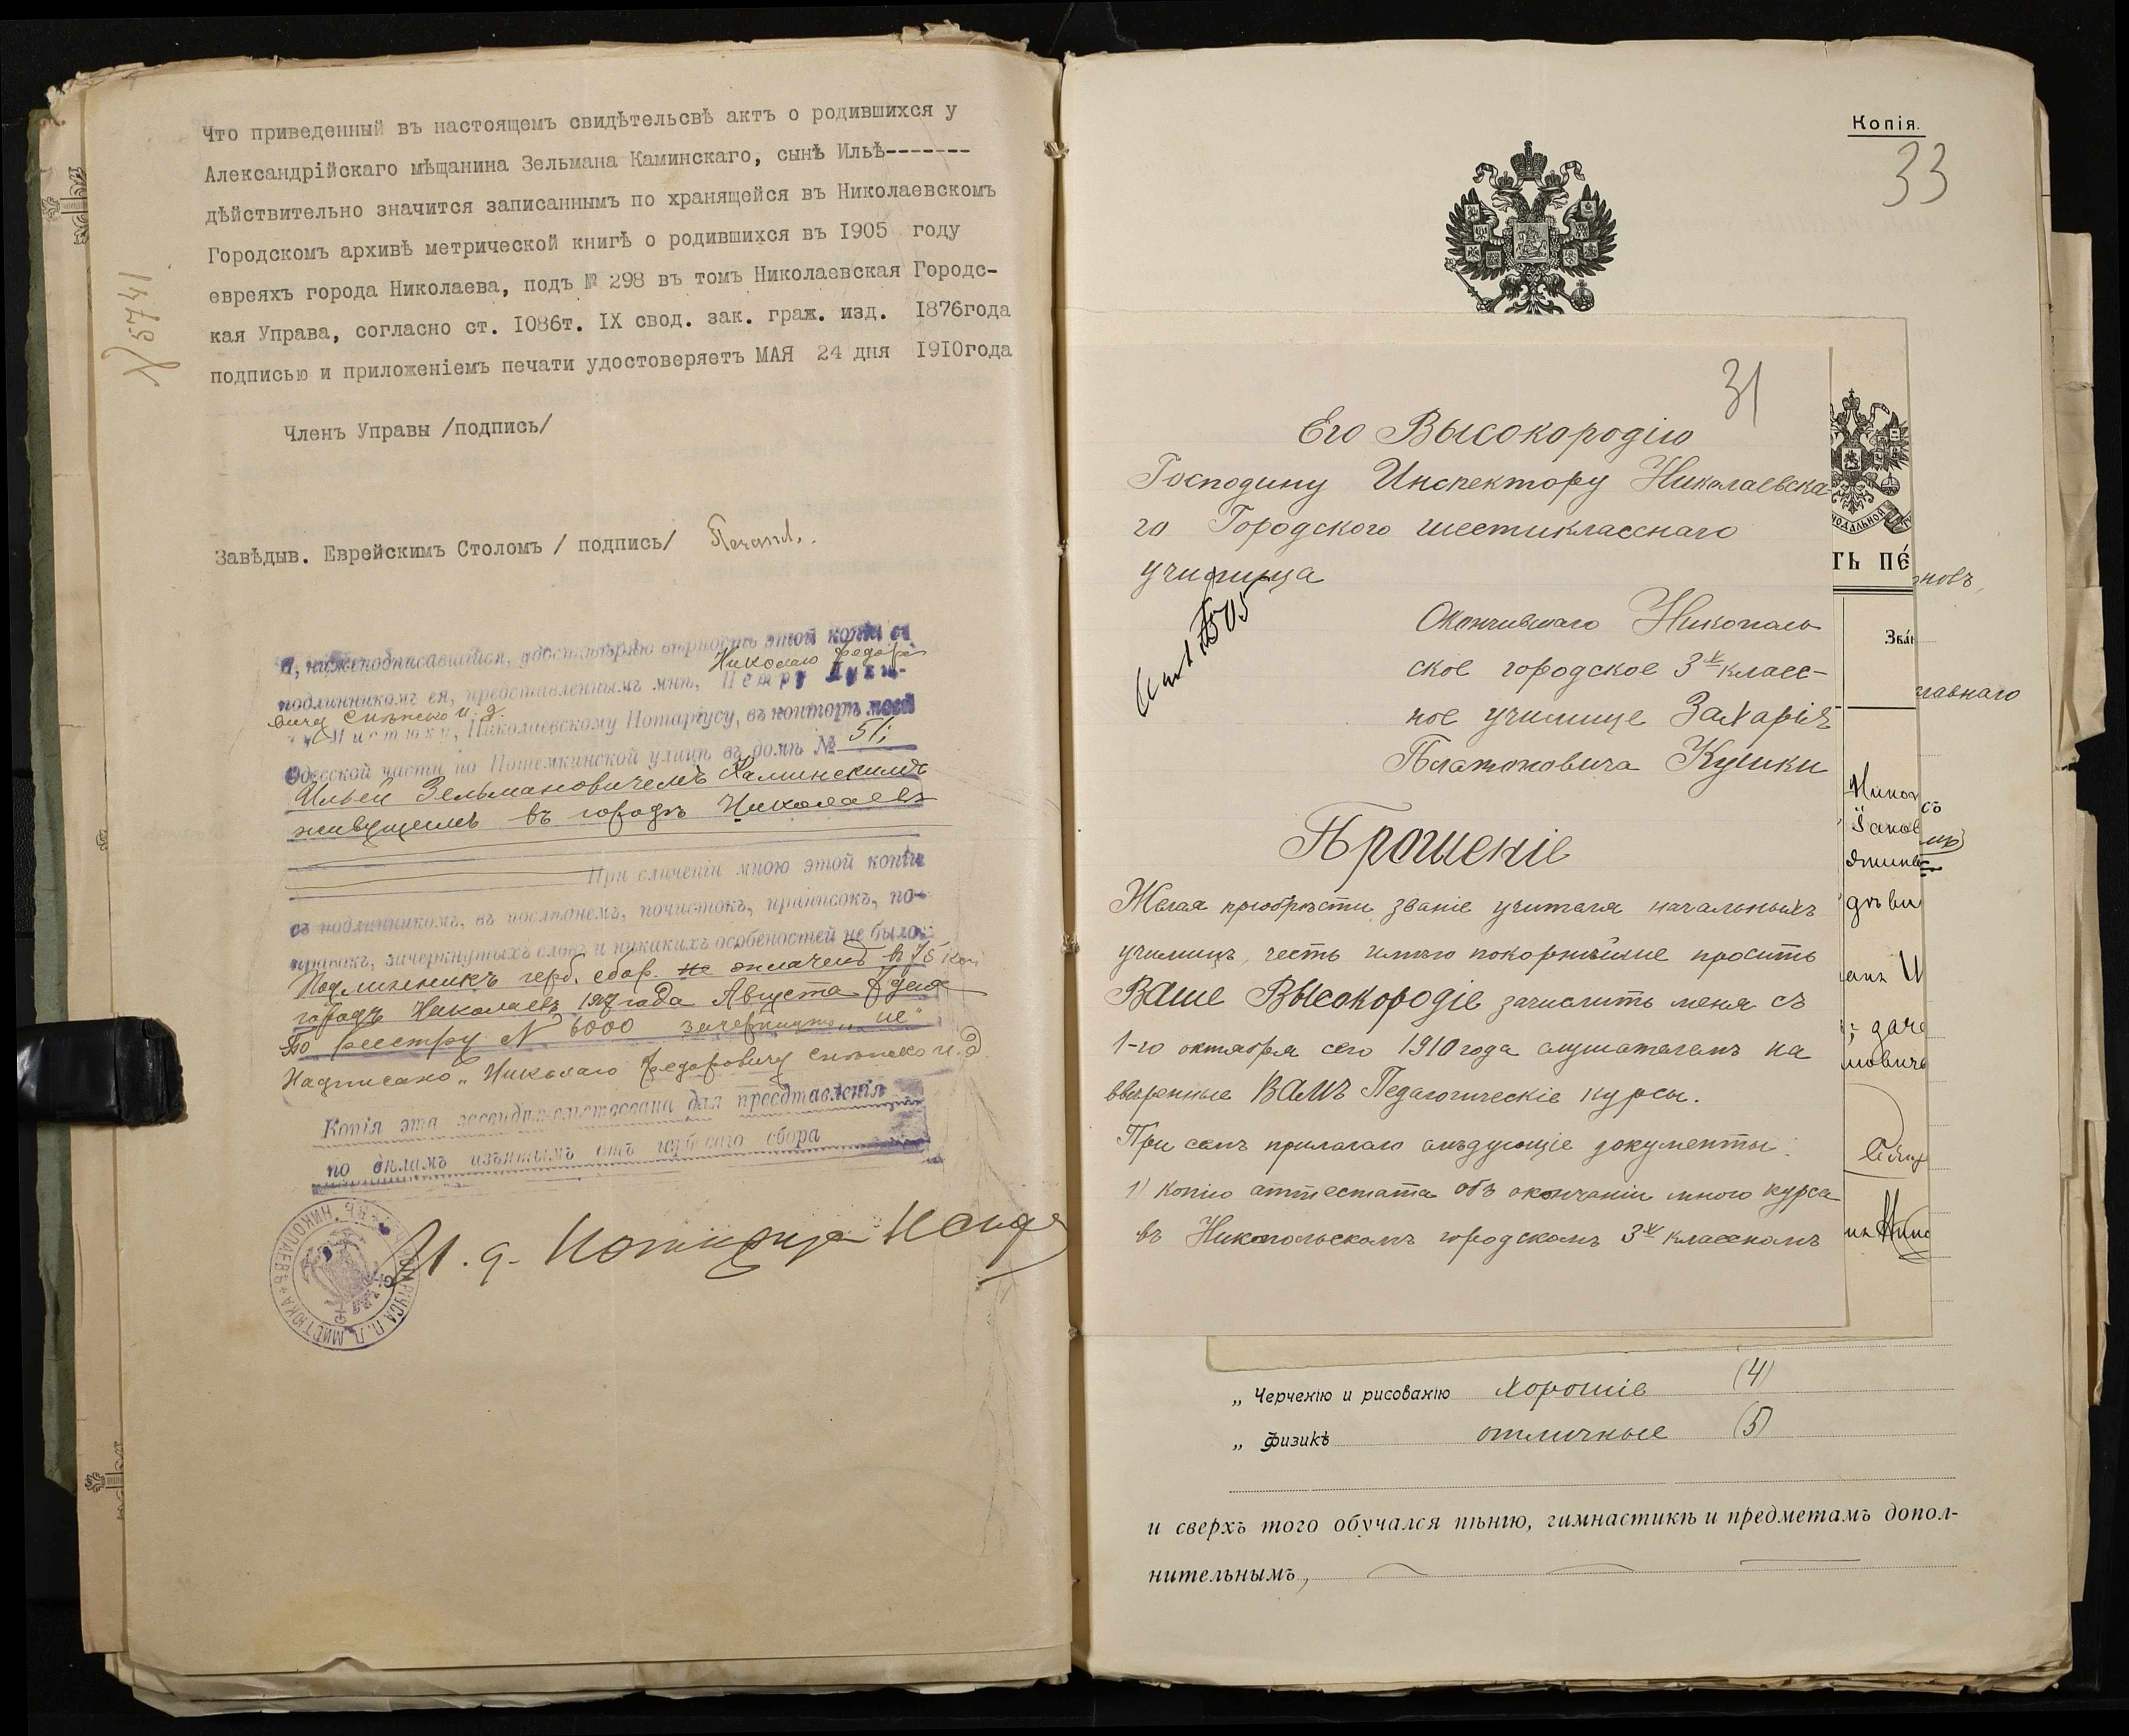 Что приведенный въ настоящемъ свидѣтельсвѣ актъ о родившихся у
Александрійскаго мѣщанина Зельмана Каминскаго, сынѣ Ильѣ-------
дѣйствительно значится записаннымъ по хранящейся въ Николаевскомъ
Городскомъ архивѣ метрической книгѣ о родившихся въ I905 году
евреяхъ города Николаева, подъ № 298 въ томъ Николаевская Городс-
кая Управа, согласно ст. I086т. IX свод. зак. граж. изд. I876года
подписью и приложеніемъ печати удостоверяетъ МАЯ 24 дня I9I0года
№ 5741
Членъ Управы /подпись/
Завѣдыв. Еврейскимъ Столомъ / подпись/
Я, нижеподписавшійся, удостовѣряю вѣрность этой копіи съ
Николаю Федоро
подлинникомъ ея, представленнымъ мнѣ, Петру Луки-
вичу Снѣжко и. д.
чу Мистюку, Николаевскому Нотаріусу, въ конторѣ моей
Одесской части по Потемкинской улицѣ въ домѣ № 51;
Ильей Зельмановичемъ Каминскимъ
живущимъ въ городѣ Николаевѣ
При сличеніи мною этой копіи
съ подлинникомъ, въ послѣднемъ, почистокъ, приписокъ, по-
правокъ, зачеркнутыхъ словъ и никакихъ особеностей не было:
Подлинникъ герб. сбор. не оплаченъ в 75 коп
городъ Николаевъ 1917 года Августа дня
По реестру N 6000 зачеркнуто „не"
Надписано „Николаю Федоровичу Снѣжко и. д.
Копія эта засвидѣтельствована для предтавленія
по дѣламъ изъятымъ отъ гербоваго сбора
И. д. Нотаріуса
НОТАРІУСА П. Л. МИСТЮКА ВЪ НИКОЛАЕВѢ
Копія.
33
31
Его Высокородію
Господину Инспектору Николаевска-
го Городского шестикласснаго
училища
505
Окончившаго Никополь
ское городское 3х класс-
ное училище Захарія
Платоновича Кушки
Прошеніе
Желая пріобрѣсти званіе учителя начальныхъ
училищъ, честь имѣю покорнѣйше просить
Ваше Высокородіе зачислить меня съ
1-го октября сего 1910 года слушателемъ на
ввѣренные Вамъ Педагогическіе курсы.
При семъ прилагаю слѣдующіе документы:
1) Копію аттестата объ окончаніи мною курса
въ Никопольскомъ городскомъ 3х классномъ
ТЬ ПЕ́
новъ,
Зва́н
главнаго
съ
„ Черченію и рисованію хорошіе (4)
„ Физикѣ отличные (5)
и сверхъ того обучался пѣнію, гимнастикѣ и предметамъ допол-
нительнымъ,